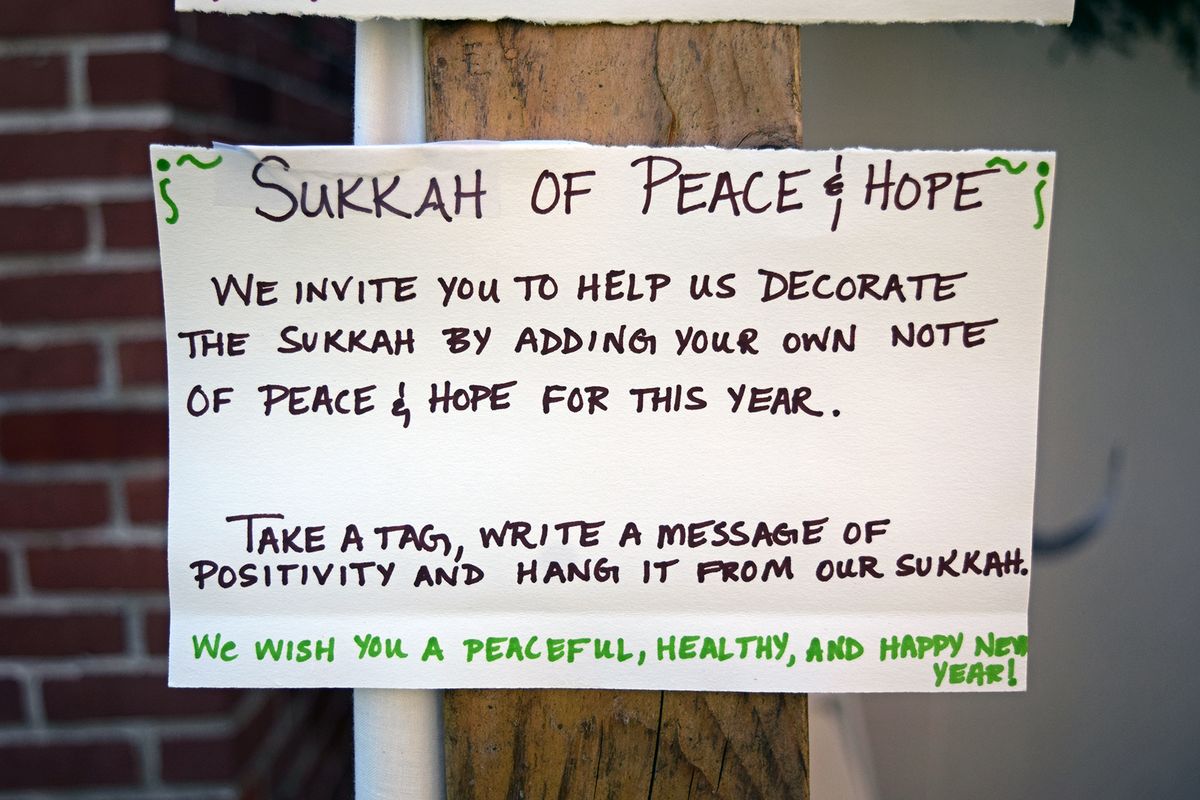 SUKKAH OF PEACE & HOPE
WE INVITE YOU TO HELP US DECORATE
THE SUKKAH BY ADDING YOUR OWN NOTE
OF PEACE & HOPE FOR THIS YEAR.
TAKE A TAG, WRITE A MESSAGE OF
POSITIVITY AND HANG IT FROM OUR SUKKAH.
We WISH YOU A PEACEFUL, HEALTHY, AND HAPPY NEW
YEAR!